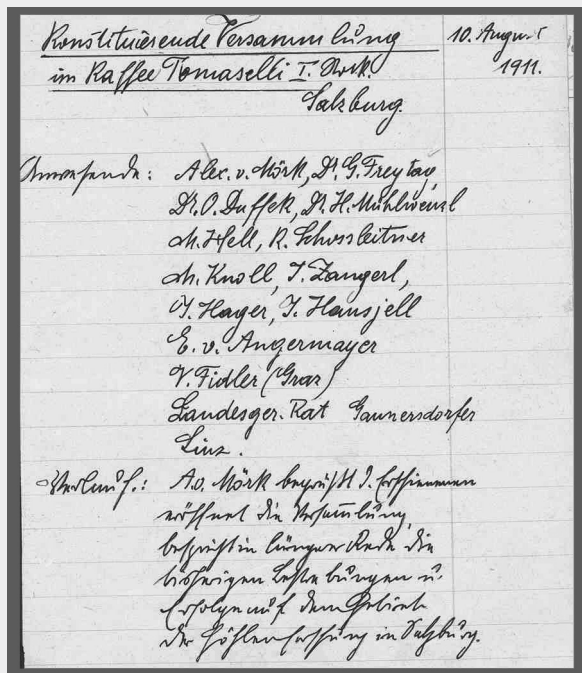 Konstituierende Versammlung
10. August
im Kaffee Tomaselli I. Stock.
1911.
Salzburg.
Anwesende: Alex. v. Mörk, Dr. G. Freytag,
Dr. O. Duffek, Dr. H. Mühlwenzl
M. Hell, R. Schossleitner
M. Knoll, J. Zangerl,
J. Hager, J. Hansjell
E. v. Angermayer
V. Fidler (Graz)
Landesger. Rat Gaunersdorfer
Linz.
Verlauf.: A.v. Mörk begrüßt d. Erschienenen
eröffnet die Versammlung,
bespricht in längerer Rede die
bisherigen Bestrebungen u.
Erfolge auf dem Gebiete
der Höhlenforschung in Salzburg.